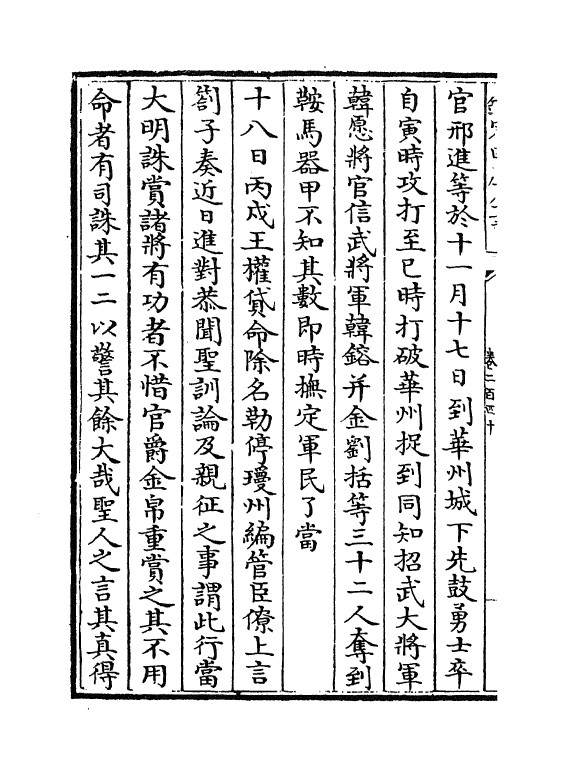 官邢進等於十一月十七日到華州城下先鼓勇士卒
自寅時攻打至巳時打破華州捉到同知招武大將軍
韓愿將官信武將軍韓鎔并金劉括等三十二人奪到
鞍馬器甲不知其數即時撫定軍民了當
十八日丙戌王權貸命除名勒停瓊州編管臣僚上言
劄子奏近日進對恭聞聖訓論及親征之事謂此行當
大明誅賞諸將有功者不惜官爵金帛重賞之其不用
命者有司誅其一二以警其餘大哉聖人之言其真得
卷二百四十